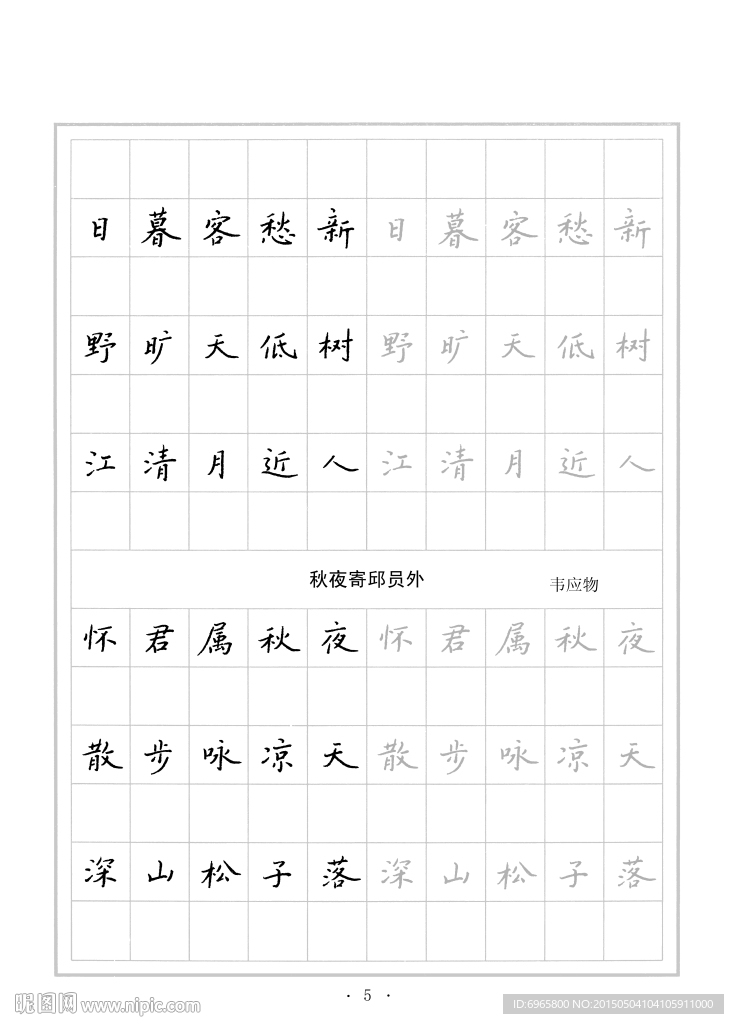 日暮客愁新日暮客愁新
野旷天低树野旷天低树
江清月近人江清月近人
秋夜寄邱员外 韦应物
怀君属秋夜怀君属秋夜
散步咏凉天散步咏凉天
深山松子落深山松子落
· 5 ·
昵图网 www.nipic.com
ID:6965800 NO:20150504104105911000